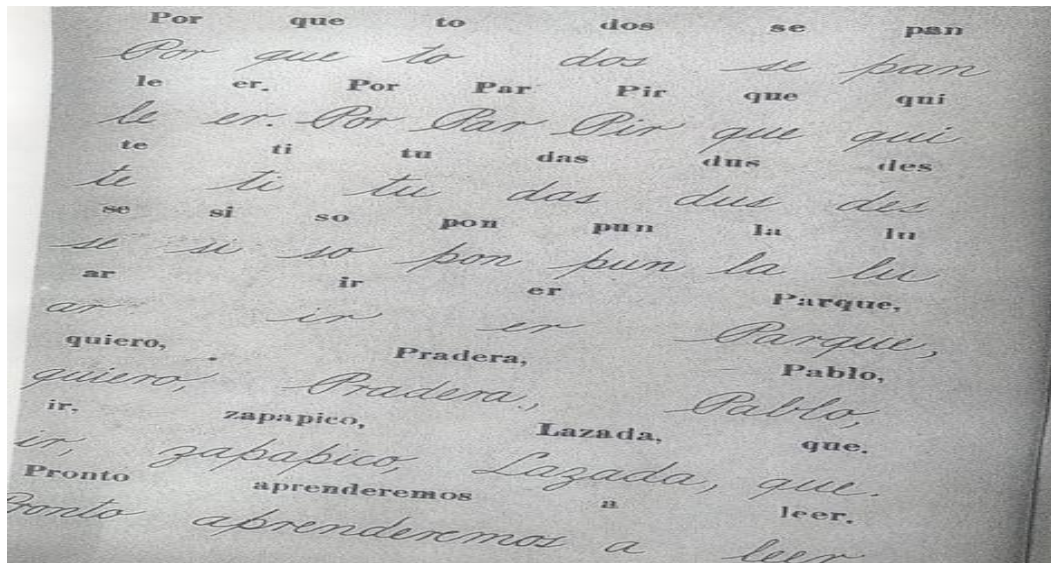 Por que to dos se pan
Por que to dos se pan
le er. Por Par Pir que qui
le er. Por Par Pir que qui
te ti tu das dus des
te ti tu das dus des
se si so pon pun la lu
se si so pon pun la lu
ar ir er Parque,
ar ir er Parque,
quiero, Pradera, Pablo,
quiero, Pradera, Pablo,
ir, zapapico, Lazada, que.
ir, zapapico, Lazada, que.
Pronto aprenderemos a leer.
Pronto aprenderemos a leer